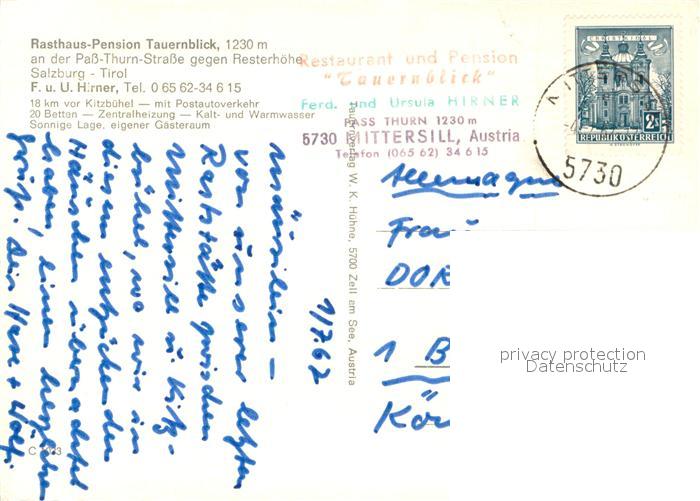 Rasthaus-Pension Tauernblick, 1230 m
an der Paß-Thurn-Straße gegen Resterhöhe
Salzburg - Tirol
F. u. U. Hirner, Tel. 0 65 62-34 6 15
18 km vor Kitzbühel — mit Postautoverkehr
20 Betten — Zentralheizung — Kalt- und Warmwasser
Sonnige Lage, eigener Gästeraum
Restaurant und Pension
"Tauernblick"
Ferd. und Ursula HIRNER
PASS THURN 1230 m
5730 MITTERSILL, Austria
Telefon (065 62) 34 6 15
CHRISTKINDL
2 S
REPUBLIK ÖSTERREICH
5730
Tauernverlag W. K. Hühne, 5700 Zell am See, Austria
Mäuslein –
von unserer letzten
Raststätte zwischen
Mittersill u. Kitz-
bühel, wo wir in
diesem entzückenden
Häuschen übernachtet
haben, einen herzlichen
Gruß. Dein Hase + Wolf.
Allemagne
Frau
DOR
1 B
Kön
privacy protection
Datenschutz